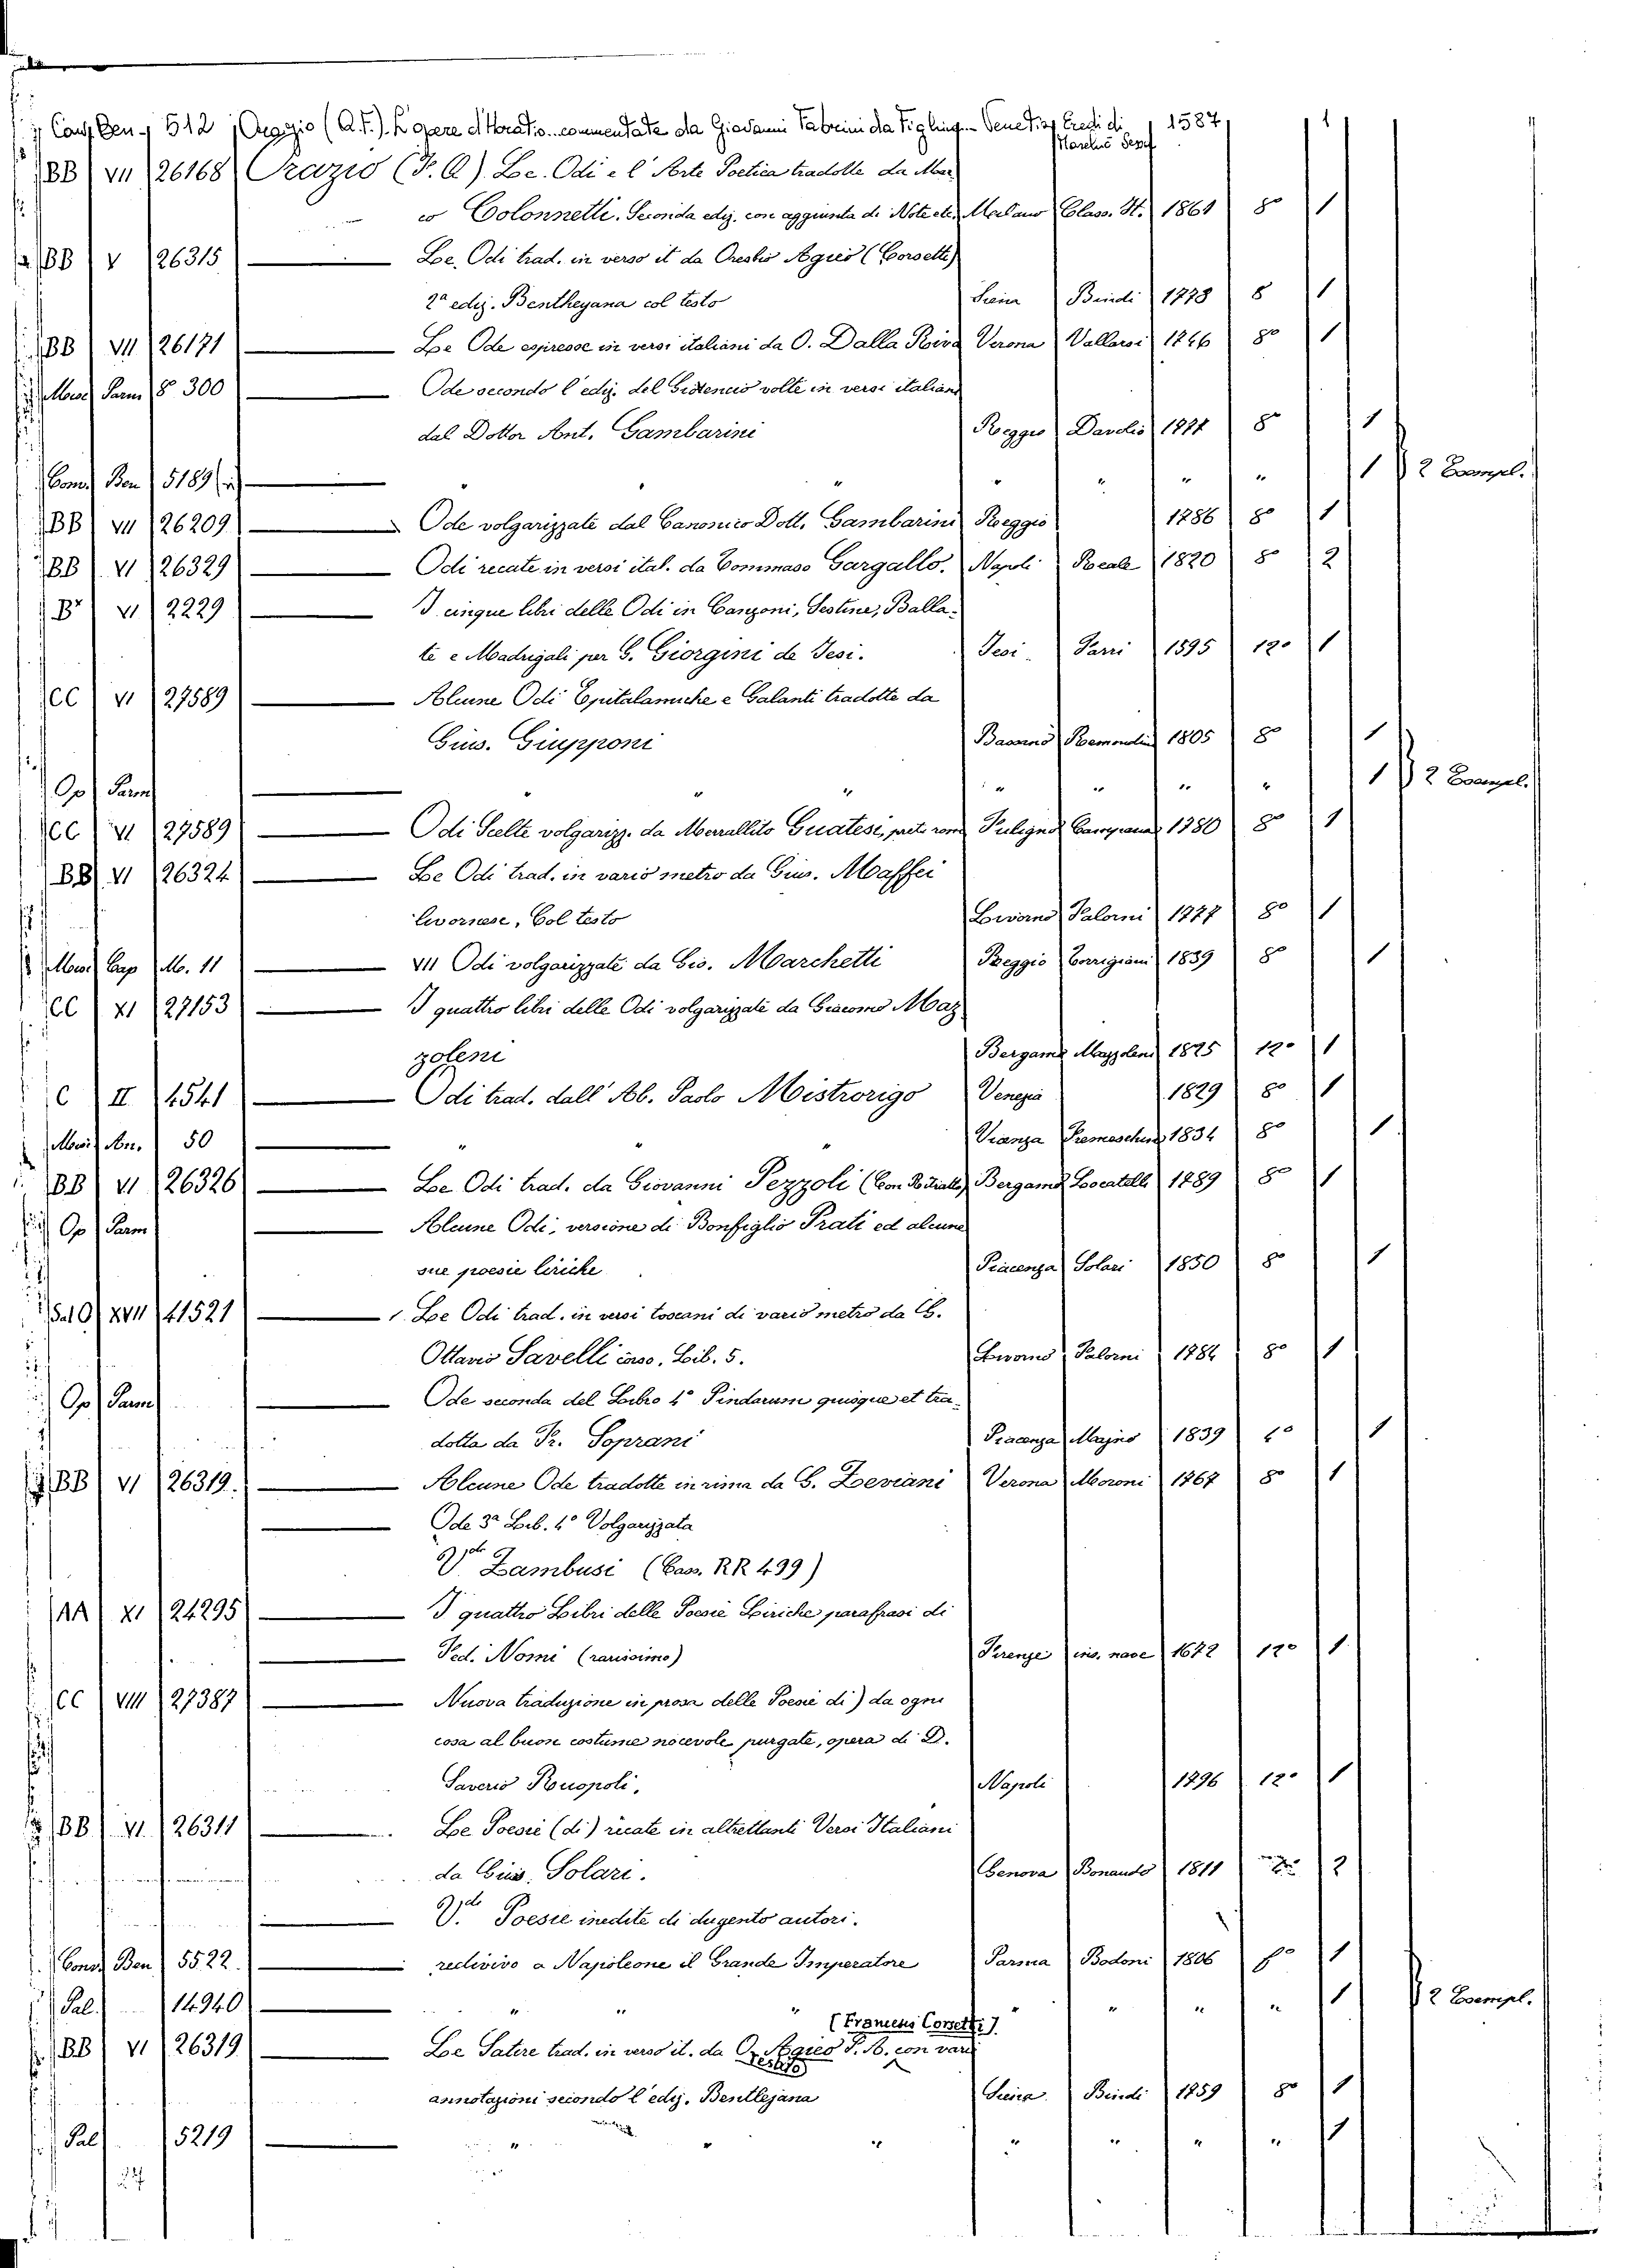 Cons. Ben. 512 Orazio (Q. F.). L'opere d'Horatio commentate da Giovanni Fabrini da Figline Venetia Eredi di Marchiò Sessa 1587 1
BB VII 26168 Orazio (F. Q.) Le Odi e l'Arte Poetica tradotte da Mar
co Colonnetti. Seconda ediz. con aggiunta di Note etc. Milano Class. It. 1861 8° 1
BB V 26315 Le Odi trad. in verso it da Oresbio Agieo (Corsetti)
2a ediz. Bentheyana col testo Siena Bindi 1778 8 1
BB VII 26171 Le Ode espresse in versi italiani da O. Dalla Riva Verona Vallarsi 1746 8° 1
Misc. Parm 8° 300 Ode secondo l'ediz. del volte in versi italiani
dal Dottor Ant. Gambarini Reggio Davolio 8° 1
Cons. Ben 5189 " " " " " " 1 2 Esempl.
BB VII 26209 Ode volgarizzate dal Canonico Dott. Gambarini Reggio 1786 8° 1
BB VI 26329 Odi recate in versi ital. da Tommaso Gargallo. Napoli Reale 1820 8° 2
B VI 2229 I cinque libri delle Odi in Canzoni, Sestine, Balla-
te e Madrigali per G. Giorgini da Jesi. Jesi 1595 12° 1
CC VI 27589 Alcune Odi Epitalamiche e Galanti tradotte da
Gius. Giupponi Bassano Remondini 1805 8° 1
Op Parm " " " " " " 1 2 Esempl.
CC VI 27589 Odi Scelte volgarizz. da prete rom Fuligno Campana 1780 8° 1
BB VI 26324 Le Odi trad. in vario metro da Gius. Maffei
livornese, Col testo Livorno Falorni 1777 8° 1
Misc Cap M. 11 VII Odi volgarizzate da Gio. Marchetti Reggio 1839 8° 1
CC XI 27153 I quattro libri delle Odi volgarizzate da Giacomo Maz
zoleni Bergamo Mazzoleni 1825 12° 1
C II 4541 Odi trad. dall'Ab. Paolo Mistrorigo Venezia 1829 8° 1
Misc. An. 50 " " Tremeschin 1834 8° 1
BB VI 26326 Le Odi trad. da Giovanni Pezzoli Bergamo Locatelli 1789 8° 1
Op Parm Alcune Odi, versione di Bonfiglio Prati ed alcune
sue poesie liriche Piacenza Solari 1850 8° 1
Sal O XVII 41521 Le Odi trad. in versi toscani di vario metro da
Ottavio Savelli corso. Lib. 5. Livorno Falorni 1784 8° 1
Op Parm Ode seconda del Libro 4° Pindarum quisque et tra-
dotta da Fr. Soprani Piacenza Majno 1839 1
BB VI 26319. Alcune Ode tradotte in rima da G. Zeviani Verona Moroni 1767 8° 1
Ode 3a Lib. 4° Volgarizzata
V. Zambusi (Cass. RR 499)
AA XI 24295 I quattro Libri delle Poesie Liriche parafrasi di
Fed. Nomi (rarissimo) Firenze ins. nave 1672 12° 1
CC VIII 27387 Nuova traduzione in prosa delle Poesie di) da ogni
cosa al buon costume nocevole purgate, opera di D.
Saverio Napoli 1796 12° 1
BB VI 26311 Le Poesie (di) recate in altrettanti Versi Italiani
da Gius. Solari. Genova Bonaudo 1811 2
V. Poesie inedite di dugento autori.
Cons. Ben 5522. redivivo a Napoleone il Grande Imperatore Parma Bodoni 1806 1
Pal. 14940 " " " " " " 1 2 Esempl.
(Francesco Corsetti)
BB VI 26319 Le Satire trad. in verso it. da Oresbio Agieo P. A. con varie
annotazioni secondo l'ediz. Bentlejana Siena. Bindi 1759 8° 1
Pal 5219 " " " " " " " 1